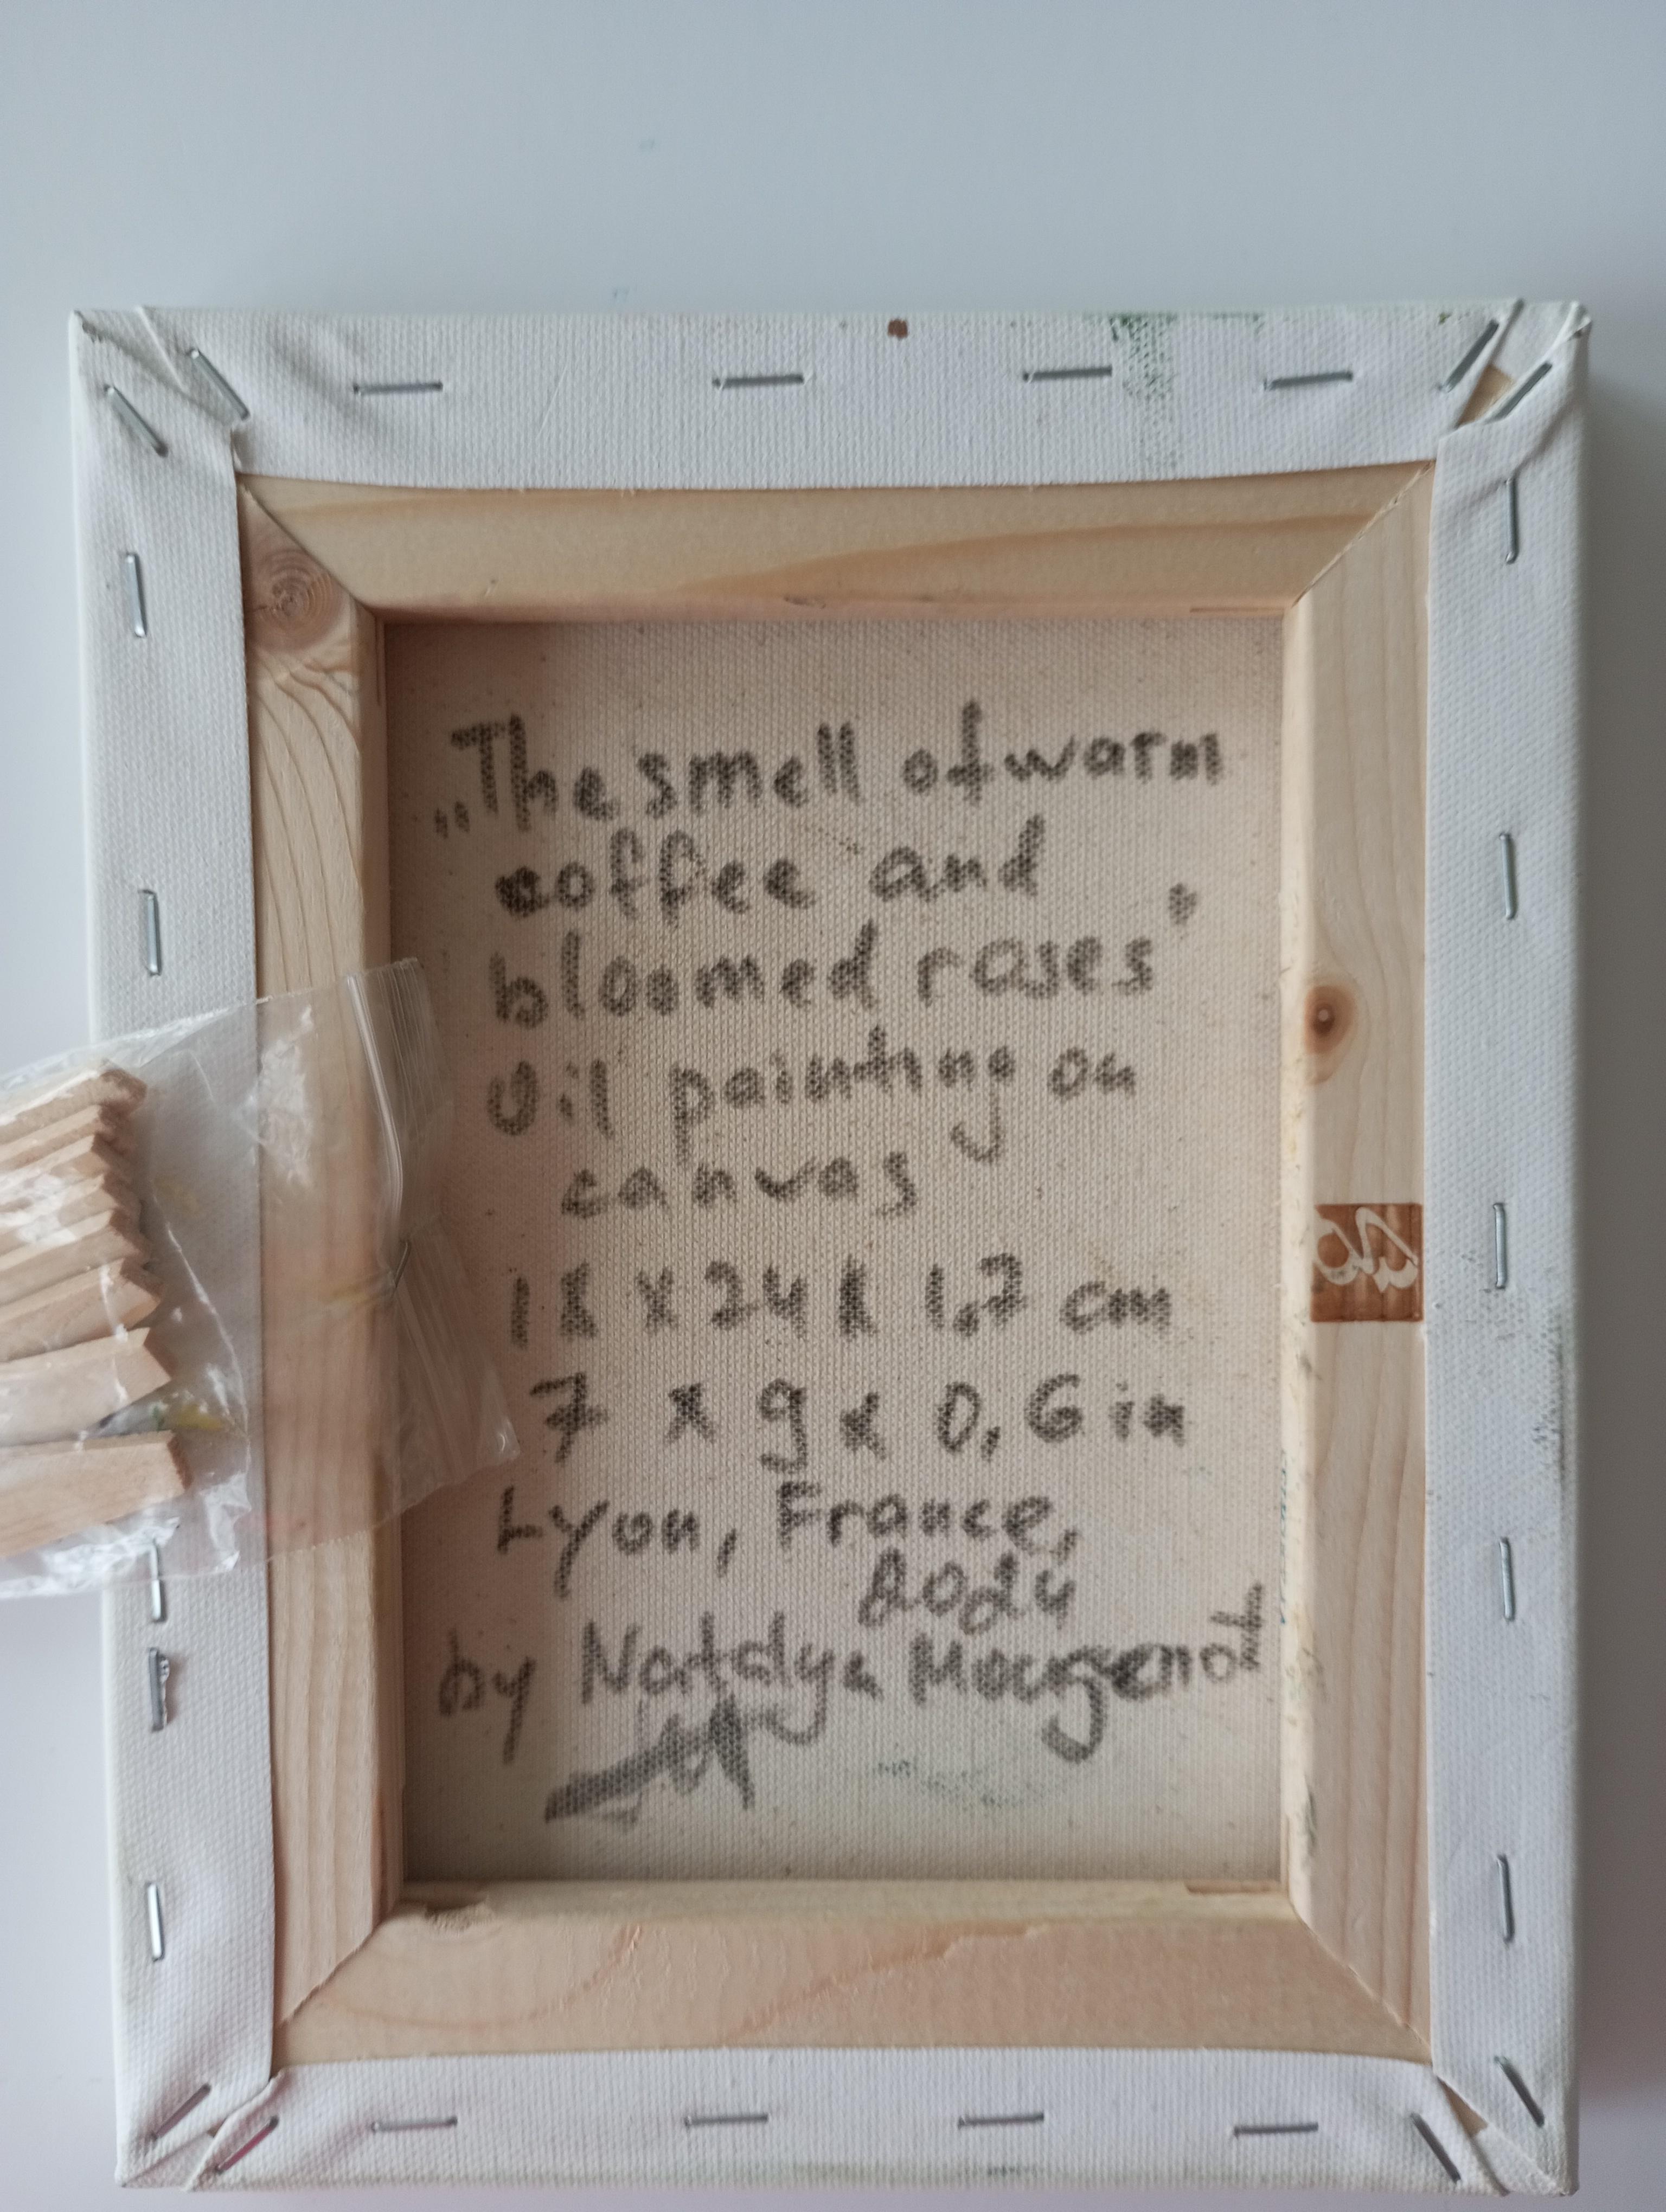 „The smell of warm
coffee and
bloomed roses"
Oil painting on
canvas
18 x 24 x 1,7 cm
7 x 9 x 0,6 in
Lyon, France,
2024
by Natalya Mougenot